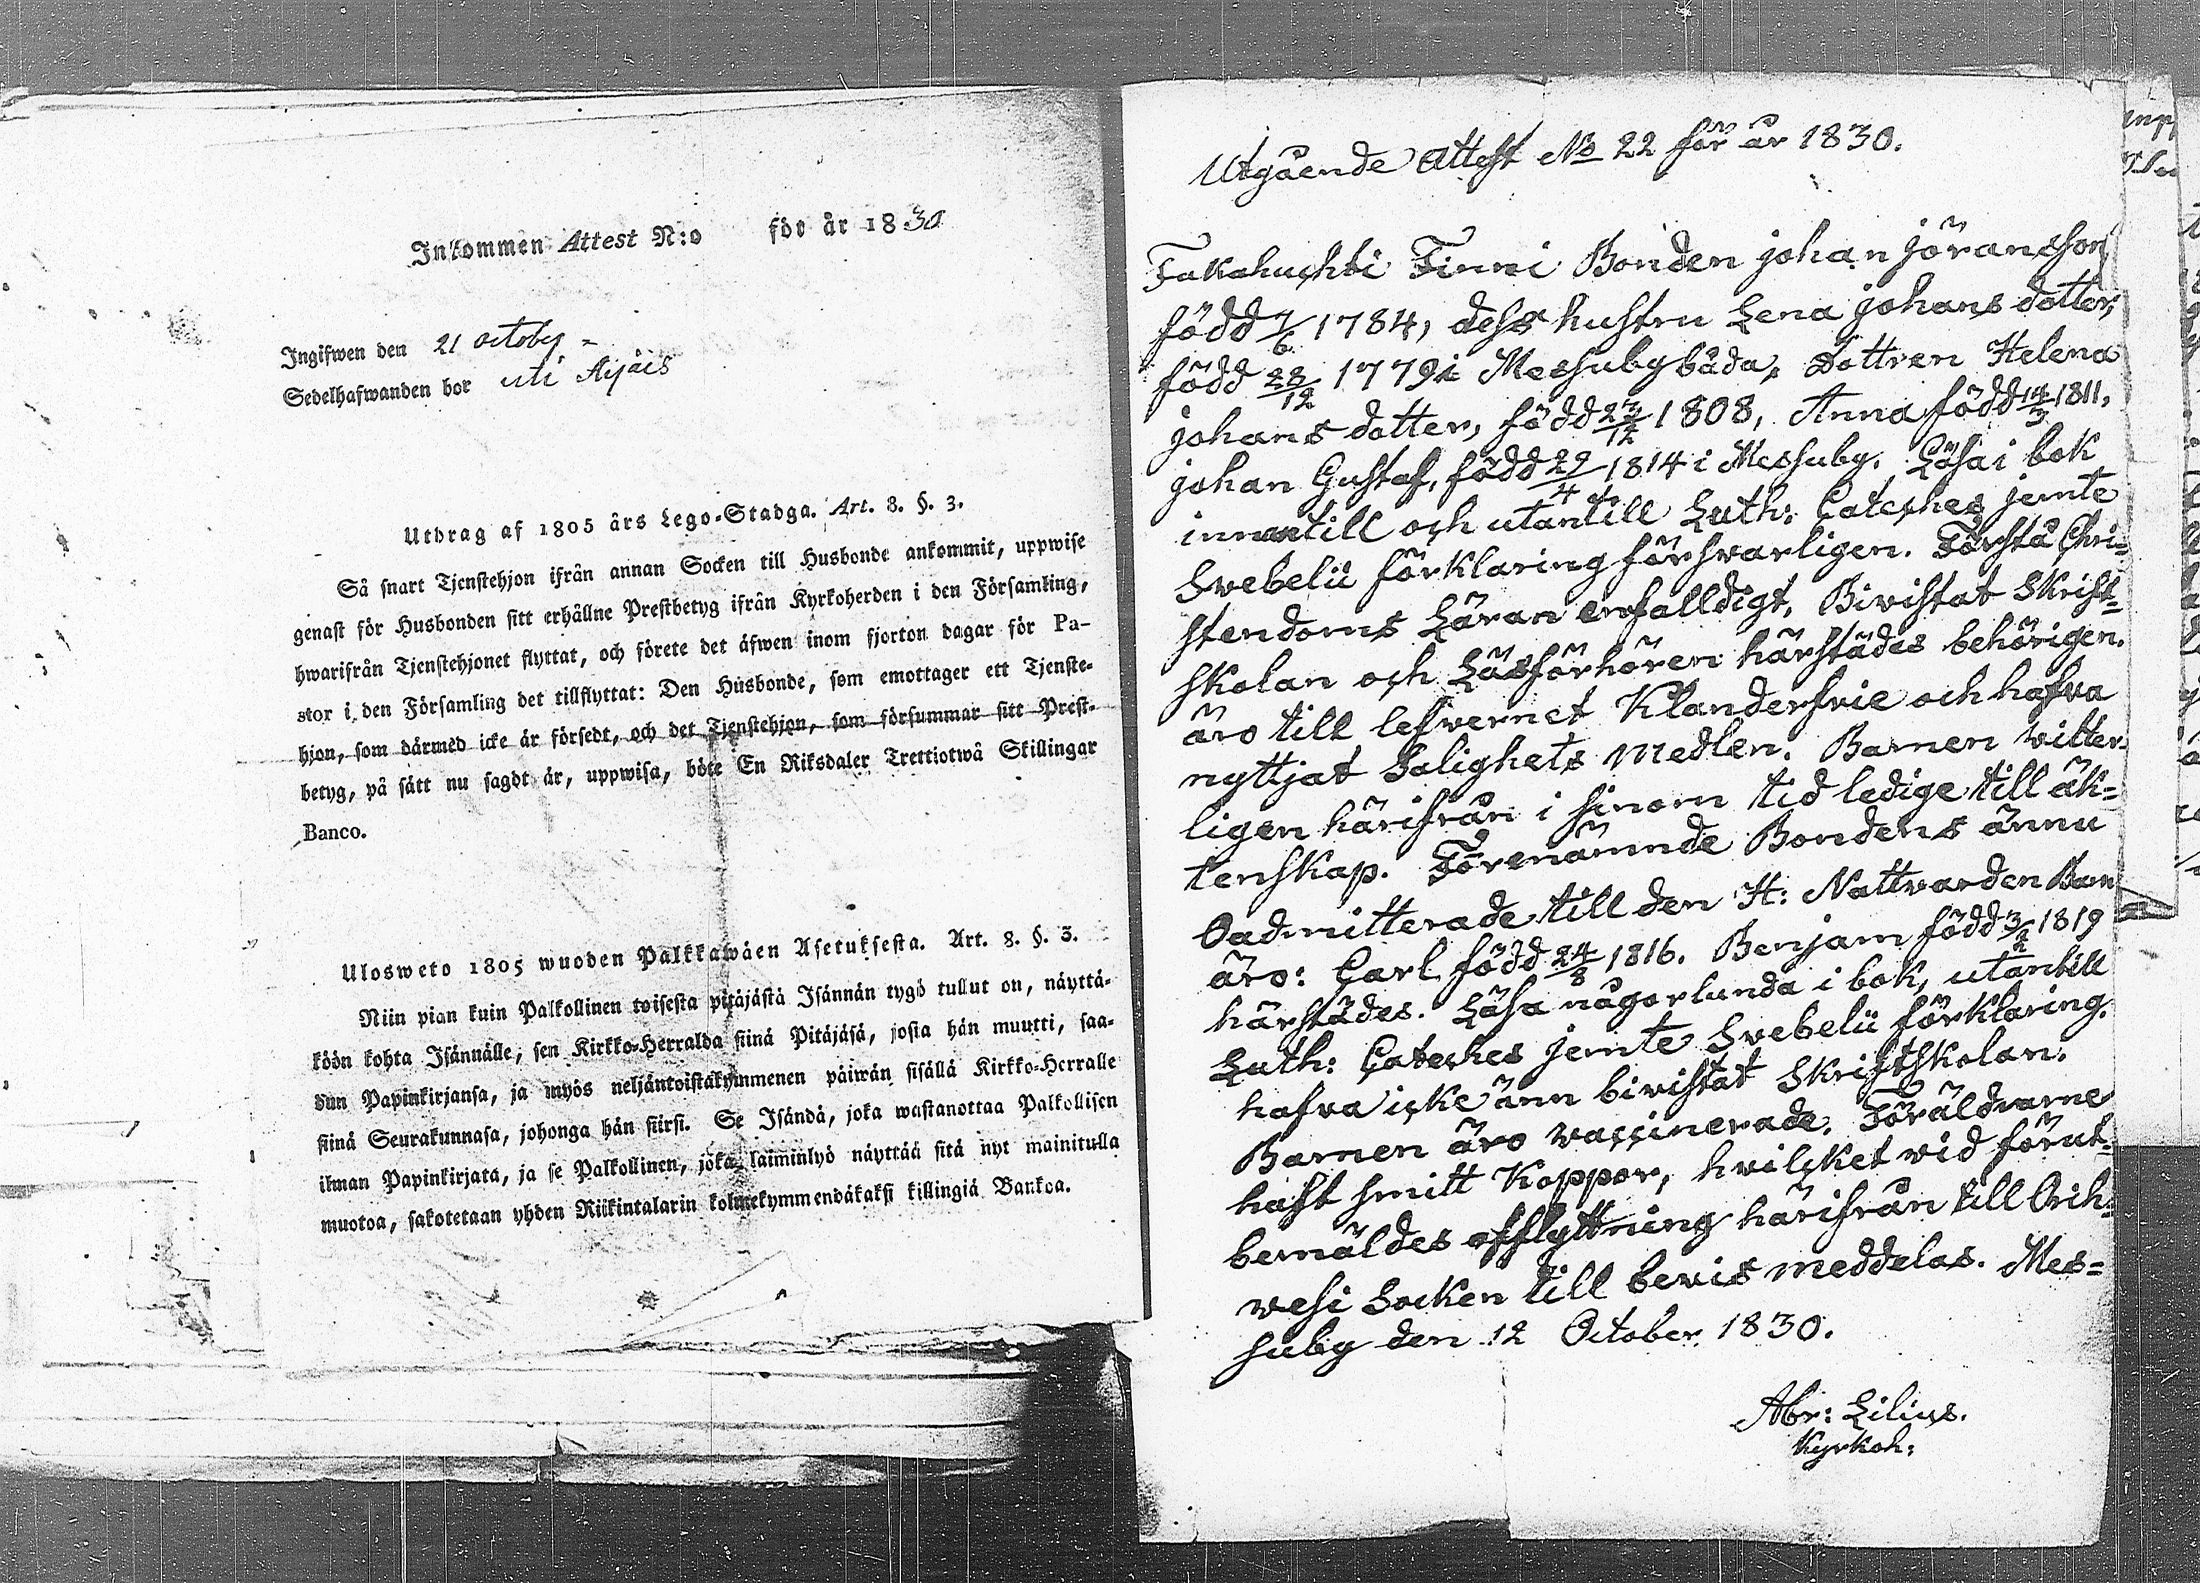 Inkommen Attest N:o för år 1830
Ingifwen den 21 octobr
Sedelhafwanden bor uti
Utdrag af 1805 års Lego-Stadga. Art. 8. §. 3.
Så snart Tjenstehjon ifrån annan Socken till Husbonde ankommit, uppwise
genast för Husbonden sitt erhållne Prestbetyg ifrån Kyrkoherden i den Församling,
hwarifrån Tjenstehjonet flyttat, och förete det äfwen inom fjorton dagar för Pa-
stor i den Församling det tillflyttat: Den Husbonde, som emottager ett Tjenste-
hjon, som därmed icke är försedt, och det Tjenstehjon, som försummar sitt Prest-
betyg, på sätt nu sagdt är, uppwisa, böte En Riksdaler Trettiotwå Skillingar
Banco.
Ulosweto 1805 wuoden Palkkawäen Asetuksesta. Art. 8. §. 3.
Niin pian kuin Palkollinen toisesta pitäjästä Isännän tygö tullut on, näyttä-
köön kohta Isännälle, sen Kirkko-Herralda siinä Pitäjäsä, josta hän muutti, saa-
dun Papinkirjansa, ja myös neljäntoistakymmenen päiwän sisällä Kirkko-Herralle
siinä Seurakunnasa, johonga hän siirsi. Se Isändä, joka wastanottaa Palkollisen
ilman Papinkirjata, ja se Palkollinen, joka laiminlyö näyttää sitä nyt mainitulla
muotoa, sakotetaan yhden Riikintalarin kolmekymmendäkaksi killingiä Bankoa.
Utgående Attest No 22 för år 1830.
Takahuhti Finni Bonden johan jöransson,
född 7/6 1784, dess hustru Lena johans dotter,
född 28/12 1779 i Messuby båda, Dottren Helena
johans dotter, född 27/12 1808, Anna född 14/3 1811,
johan Gustaf, född 29/4 1814 i Messuby. Läsa i bok
innantill och utantill Luth: Cateches jemte
Svebelii förklaring försvarligen. Förstå Chri=
stendoms Läran enfalldigt, Bivistat Skrift=
skolan och Läsförhören härstädes behörigen.
äro till lefvernet Klanderfrie och hafva
nyttjat Salighets medlen. Barnen vitter=
ligen härifrån i sinom tid ledige till äk=
tenskap. Förenämnde Bondens ännu
Oadmitterade till den H: Nattvarden Barn
äro: Carl född 24/8 1816. Benjam född 3/2 1819
härstädes. Läsa någorlunda i bok, utantill
Luth: Cateches jemte Svebelii förklaring.
hafva icke änn bivistat Skriftskolan.
Barnen äro vaccinerade. Föräldrarne
haft smitt Koppor, hvilcket vid förut=
bemäldes afflyttning härifrån till Orih=
vesi Socken till bevis meddelas. Mes=
suby den 12 October 1830.
Abr: Lilius.
Kyrkoh: